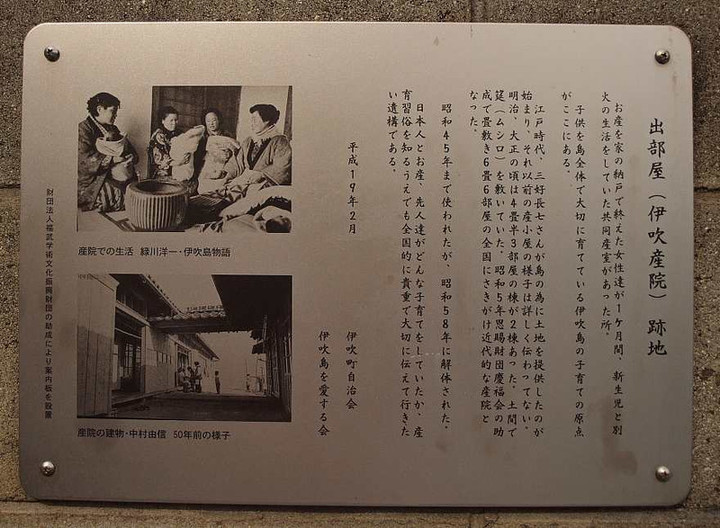 出部屋（伊吹産院）跡地
お産を家の納戸で終えた女性達が1ケ月間、新生児と別
火の生活をしていた共同産室があった所。
子供を島全体で大切に育てている伊吹島の子育ての原点
がここにある。
江戸時代、三好長七さんが島の為に土地を提供したのが
始まり、それ以前の産小屋の様子は詳しく伝わってない。
明治、大正の頃は4畳半3部屋の棟が2棟あった。土間で
筵（ムシロ）を敷いていた。昭和5年恩賜財団慶福会の助
成で畳敷き6畳6部屋の全国にさきがけ近代的な産院と
なった。
昭和45年まで使われたが、昭和58年に解体された。
日本人とお産、先人達がどんな子育てをしていたか、産
育習俗を知るうえでも全国的に貴重で大切に伝えて行きた
い遺構である。
平成19年2月
伊吹町自治会
伊吹島を愛する会
産院での生活 緑川洋一・伊吹島物語
産院の建物・中村由信 50年前の様子
財団法人福武学術文化振興財団の助成により案内板を設置